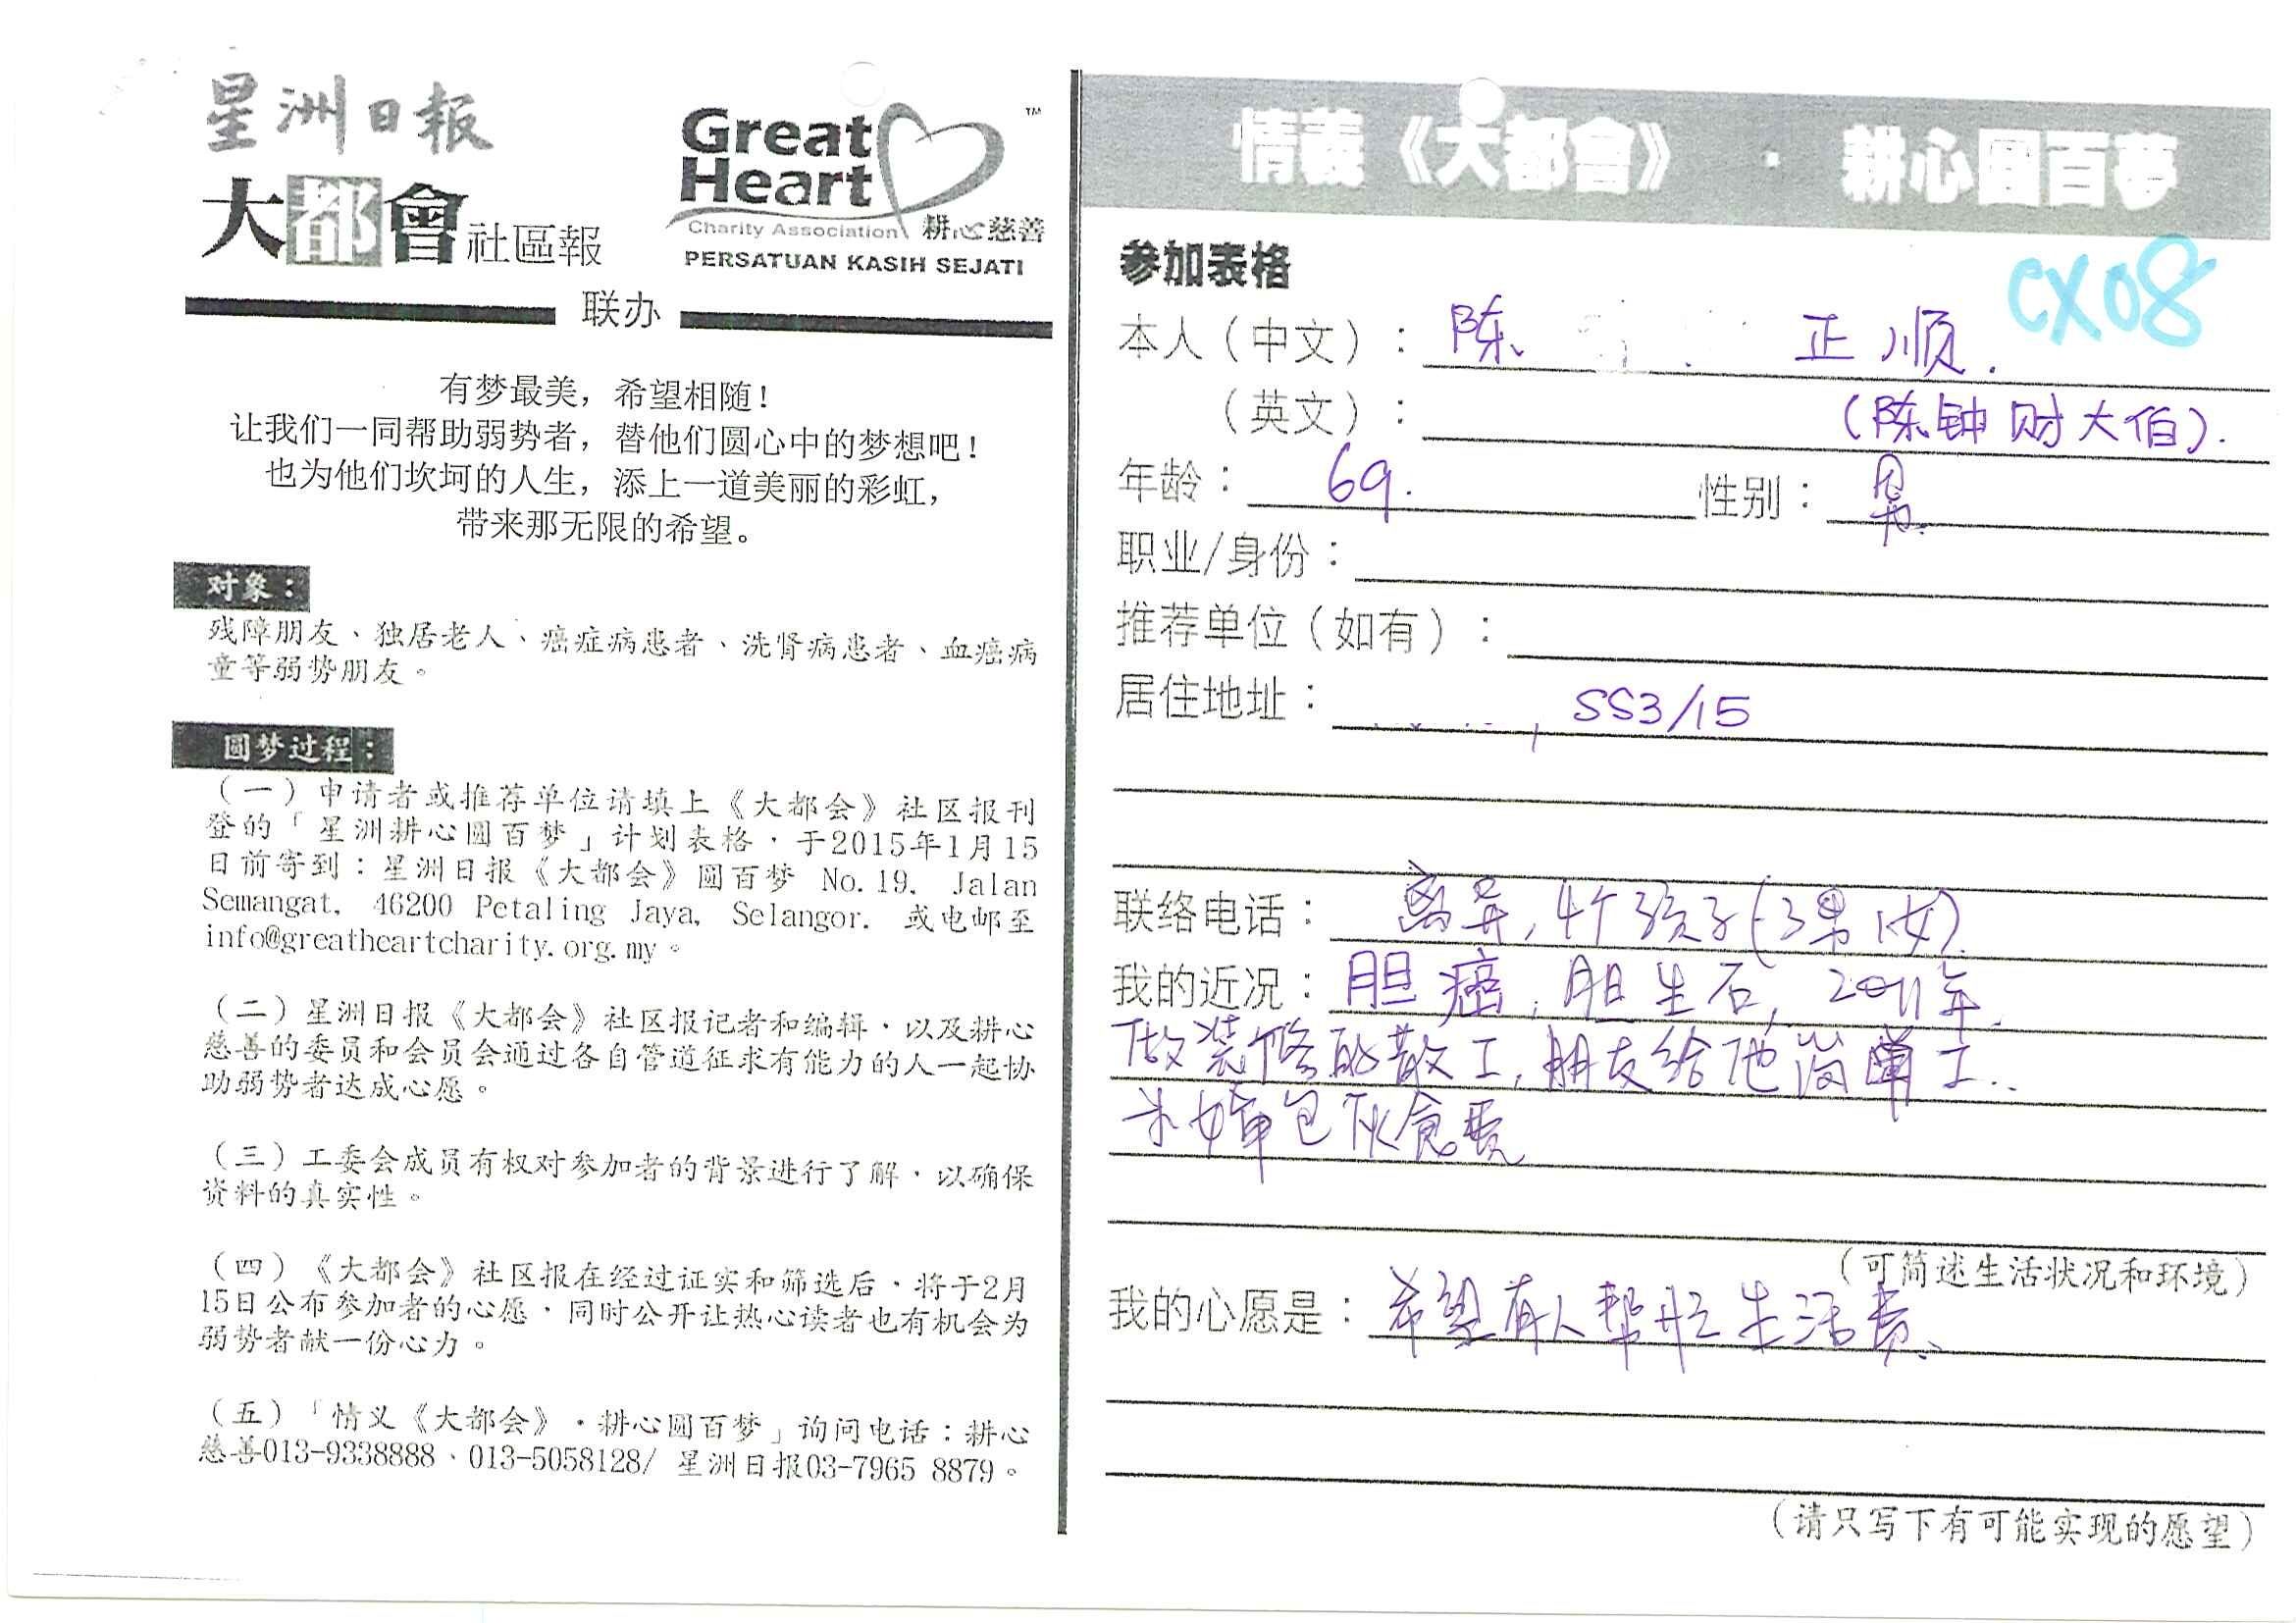 星洲日报
大都會社區報
Great
Heart
™
Charity Association 耕心慈善
PERSATUAN KASIH SEJATI
联办
有梦最美，希望相随！
让我们一同帮助弱势者，替他们圆心中的梦想吧！
也为他们坎坷的人生，添上一道美丽的彩虹，
带来那无限的希望。
对象：
残障朋友、独居老人、癌症病患者、洗肾病患者、血癌病
童等弱势朋友。
圆梦过程：
（一）申请者或推荐单位请填上《大都会》社区报刊
登的「星洲耕心圆百梦」计划表格，于2015年1月15
日前寄到：星洲日报《大都会》圆百梦 No.19, Jalan
Semangat, 46200 Petaling Jaya, Selangor. 或电邮至
info@greatheartcharity.org.my。
（二）星洲日报《大都会》社区报记者和编辑，以及耕心
慈善的委员和会员会通过各自管道征求有能力的人一起协
助弱势者达成心愿。
（三）工委会成员有权对参加者的背景进行了解，以确保
资料的真实性。
（四）《大都会》社区报在经过证实和筛选后，将于2月
15日公布参加者的心愿，同时公开让热心读者也有机会为
弱势者献一份心力。
（五）「情义《大都会》·耕心圆百梦」询问电话：耕心
慈善013-9338888、013-5058128/ 星洲日报03-7965 8879。
情義《大都會》 · 耕心圓百夢
参加表格
CX08
本人（中文）：陈 正顺.
（英文）：（陈钟财大伯）.
年龄：69. 性别：男.
职业/身份：
推荐单位（如有）：
居住地址：, SS3/15
联络电话：离异, 4个孩子(3男1女).
我的近况：胆癌, 胆生石, 2011年.
做装修的散工, 朋友给他简单工..
包伙食费
（可简述生活状况和环境）
我的心愿是：希望有人帮忙生活费.
（请只写下有可能实现的愿望）